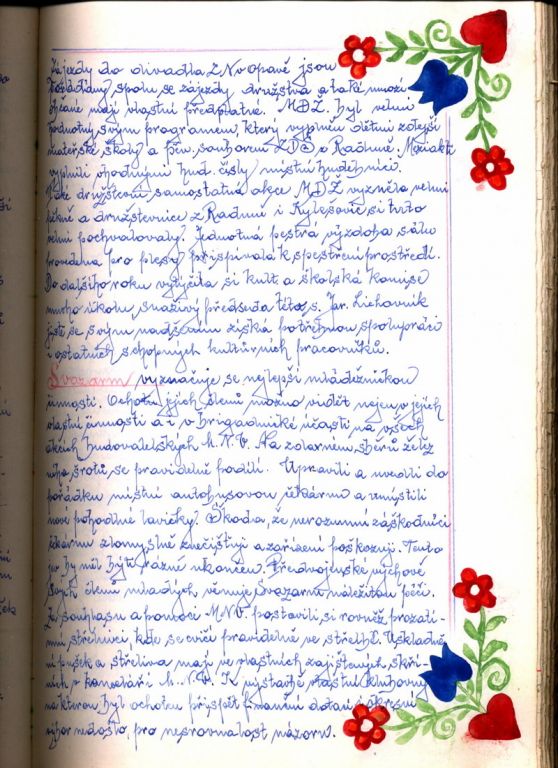 Zájezdy do divadla Z.N v opavě jsou
pořádány spolu se zájezdy družstva a také mnozí
občané mají vlastní předplatné. MDŽ. byl velmi
hodnotný svým programem, který vyplnili dětmi zdejší
mateřské školy a pěv. souborem ZDŠ v Raduni. Meziaktí
vyplnili vhodnými hud. čísly místní hudebníci.
Jako družstevní samostatná akce MDŽ vyzněla velmi
pěkně a družstevnice z Raduně i Kylešovic si tuto
velmi pochvalovaly. Jednotná pestrá výzdoba sálu
provedena pro plesy přispívala k zpestření prostředí.
Do dalšího roku vytýčila si kult. a školská komise
mnoho úkolů, snaživý předseda této, s. Jar. Lichovník
jistě se svým nadšením získá potřebnou spolupráci
i ostatních schopných kultůrních pracovníků.
Svazarm vyznačuje se nejlepší mládežnickou
činností. Ochotu jejich členů možno vidět nejen v jejich
vlastní činnosti a i v brigádnické účasti na všech
akcích budovatelských M.N.V. Na zdárném sběrů želez
ného šrotů se pravidelně podílí. Upravili a uvedli do
pořádku místní autobusovou čekárnu a umístili
nové pohodlné lavičky. Škoda, že nerozumní záškodníci
čekárnu zlomyslně znečišťují a zařízení poškozují. Tento
jev by měl být rázně ukončen. Předvojenské výchově
svých členů mladých, věnuje Svazarm náležitou péči.
Ze souhlasu a pomoci M.N.V. postavili si rovněž prozatí-
mní střelnici kde se cvičí pravidelně ve střelbě. Uskladně
ní pušek a střeliva mají ve vlastních zajištěných skří-
ních v kanceláři M.N.V. K výstavbě vlastní klubovny
na kterou byl ochotn přispět finanční dotací i okresní
výbor nedošlo, pro nesrovnalost názorů.